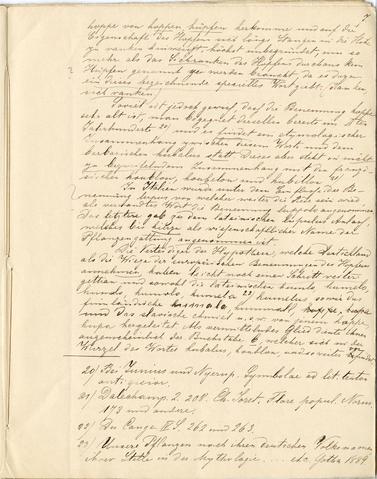 7
hoppe von hoppen hüpfen herkomme und auf die
Eigenschaft des Hopfens sich längs Stangen in die Höhe
zu ranken hinweist, höchst unbegründet, um so
mehr als das Schranken des Hopfens durchaus kein
Hüpfen genannt zu werden braucht, da es dazu
ein dieses bezeichnende spezielles Wort giebt,
sich ranken.
Soviel ist jedoch gewiss, dass die Benennung hoppe
sehr alt ist, man begegnet dieselbe bereits im
Jahrhunderte 20) und es findet ein etymologischer
Zusammenhang zwischen diesem Wort und dem
barbarischen hubalus statt. Dieses aber steht in nicht
zu bezweifelndem Zusammenhang mit der französischen
houblon, houbelon und hubillon 21)
In Italien wurde unter dem Einfluss der Benennung
lupus von welcher weiter die Rede sein wird
als verwandtes Wort die Benennung luppolo angenommen.
Das letztere gab zu dem lateinischen lupulus Anlass,
welches bis heute als wissenschaftlicher Name der
Pflanzengattung angenommen ist.
Die Vertheidiger der Hypothese, welche Deutschland
als die Wiege der europäischen Benennungen des Hopfens
annehmen, haben leicht noch einen Schritt weiter
gethan und sowohl die lateinischen humlo, humelo,
humolo, humulo, humela 22), humulus, sowie das
finnländische hummala, hummal,
und das slavische chmiel u. s. w. von jenem hoppe,
hupa hergeleitet. Als vermittelndes Glied dient ihnen
augenscheinlich der Buchstabe b, welcher sich in der
Wurzel des Wortes hubalus, houblon, und so weiter befindet.
20) Bei Junius und Nyerup. Symbolae ad lit. teuton.
antiquior.
21) Dalechamp. 2. 208. Ch. Joret. Flore popul. Norm.
178 und andere.
22) Du Cange III S. 262 und 263.
23) Unsere Pflanzen nach ihren deutschen Volksnamen
ihrer Stelle in der Mythologie .... etc. Gotha 1889